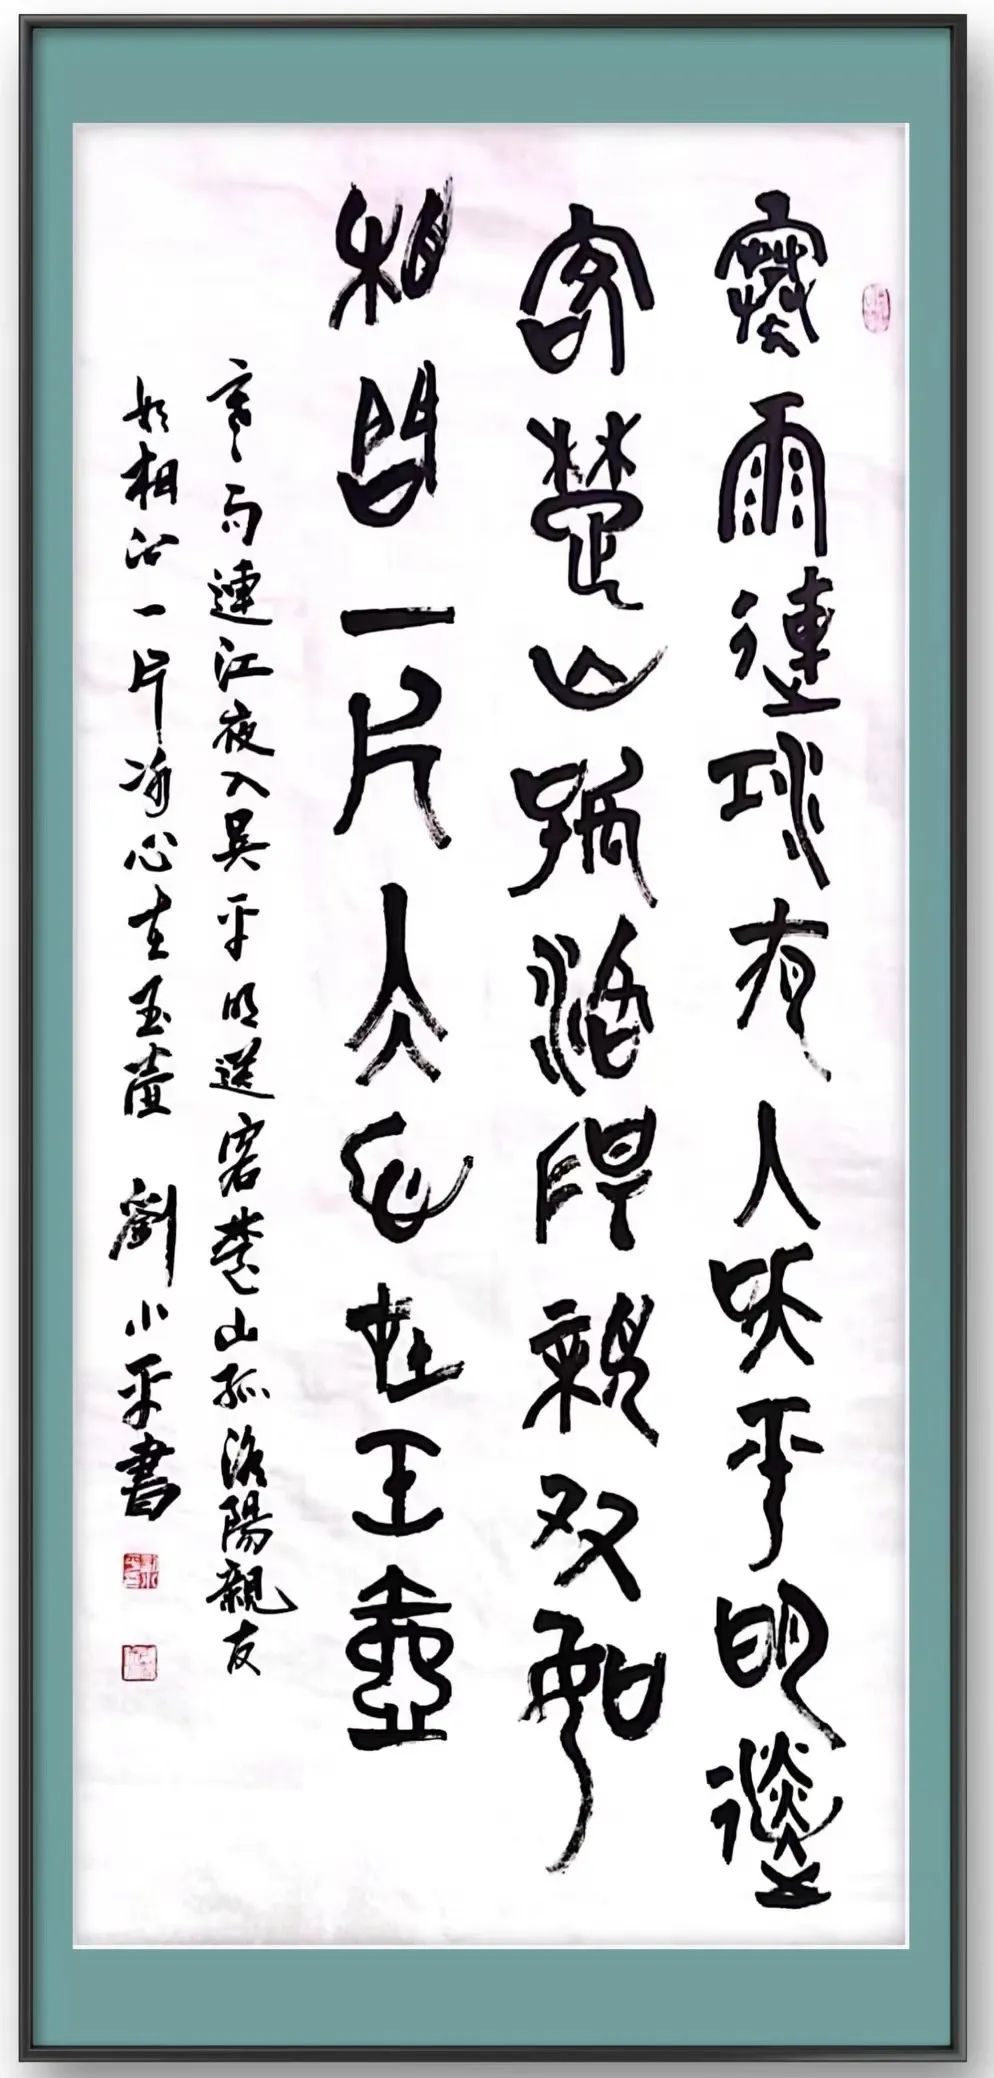 寒雨連江夜入吳平明送
客楚山孤洛陽親友如
相問一片冰心在玉壺
寒雨連江夜入吳平明送客楚山孤洛陽親友
如相问一片冰心在玉壺 劉小平書